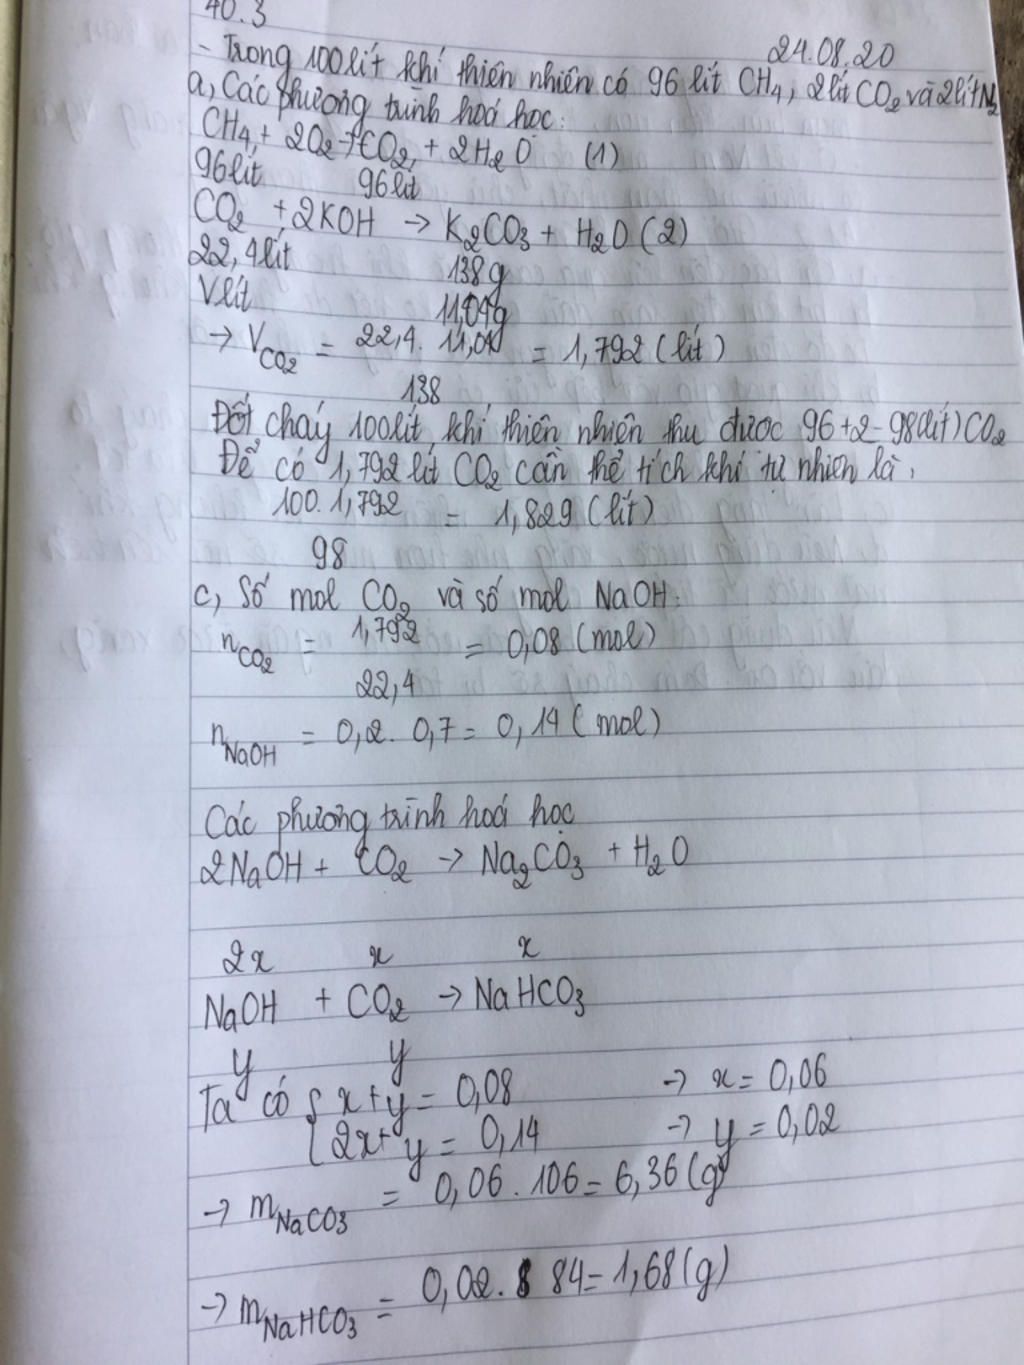 40.3
24.08.20
- Trong 100lít khí thiên nhiên có 96 lít CH4, 2lít CO2 và 2lít N2
a, Các phương trình hoá học:
CH4 + 2O2 → CO2 + 2H2O (1)
96lít 96lít
CO2 + 2KOH → K2CO3 + H2O (2)
22,4lít 138g
Vlít 11,04g
→ VCO2 = 22,4. 11,04 = 1,792 (lít)
138
Đốt cháy 100lít khí thiên nhiên thu được 96+2=98(lít)CO2
Để có 1,792 lít CO2 cần thể tích khí tự nhiên là:
100. 1,792 = 1,829 (lít)
98
c, Số mol CO2 và số mol NaOH:
nCO2 = 1,792 = 0,08 (mol)
22,4
nNaOH = 0,2. 0,7 = 0,14 (mol)
Các phương trình hoá học
2NaOH + CO2 → Na2CO3 + H2O
2x x x
NaOH + CO2 → NaHCO3
y y
Ta có { x+y = 0,08 → x = 0,06
2x+y = 0,14 → y = 0,02
→ mNaCO3 = 0,06 . 106 = 6,36 (g)
→ mNaHCO3 = 0,02. 84 = 1,68 (g)